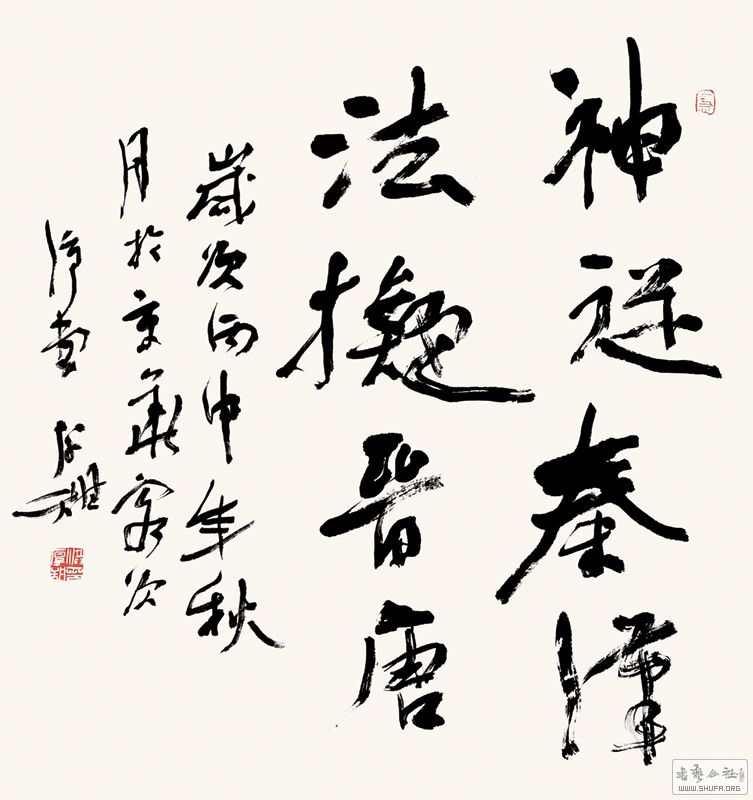 神従秦漢
法擬晉唐
歲次丙申年秋
月於京華客次
書藝公社
WWW.SHUFA.ORG